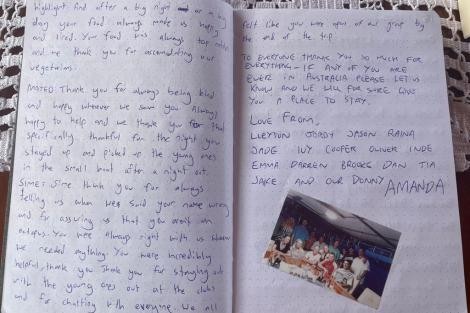 highlight. And after a big night or a big
day your food always made us happy
and tired. Your food was always top notch
and we thank you for accomodating our
vegetarians.
MATEO: Thank you for always being kind
and happy whenever we saw you. Always
happy to help and we thank you for that
specifically, thankful for the night you
stayed up and picked up the young ones
in the small boat after a night out.
SIME: Sime thank you for always
telling us when we said your name wrong
and for assuring us that you aren't an
octopus. You were always right with us when
we needed anything. You were incredibly
helpful, thank you. Thank you for staying out
with the young ones out at the clubs
and for chatting with everyone. We all
felt like you were apart of our group by
the end of the trip.
TO EVERYONE THANK YOU SO MUCH FOR
EVERYTHING - IF ANY OF YOU ARE
EVER IN AUSTRALIA PLEASE LET US
KNOW AND WE WILL FOR SURE GIVE
YOU A PLACE TO STAY.
LOVE FROM,
LLEYTON JORDY JASON RAINA
JADE IVY COOPER OLIVER INDE
EMMA DARREN BROOKE DAN TIA
JAKE AND OUR DONNY AMANDA